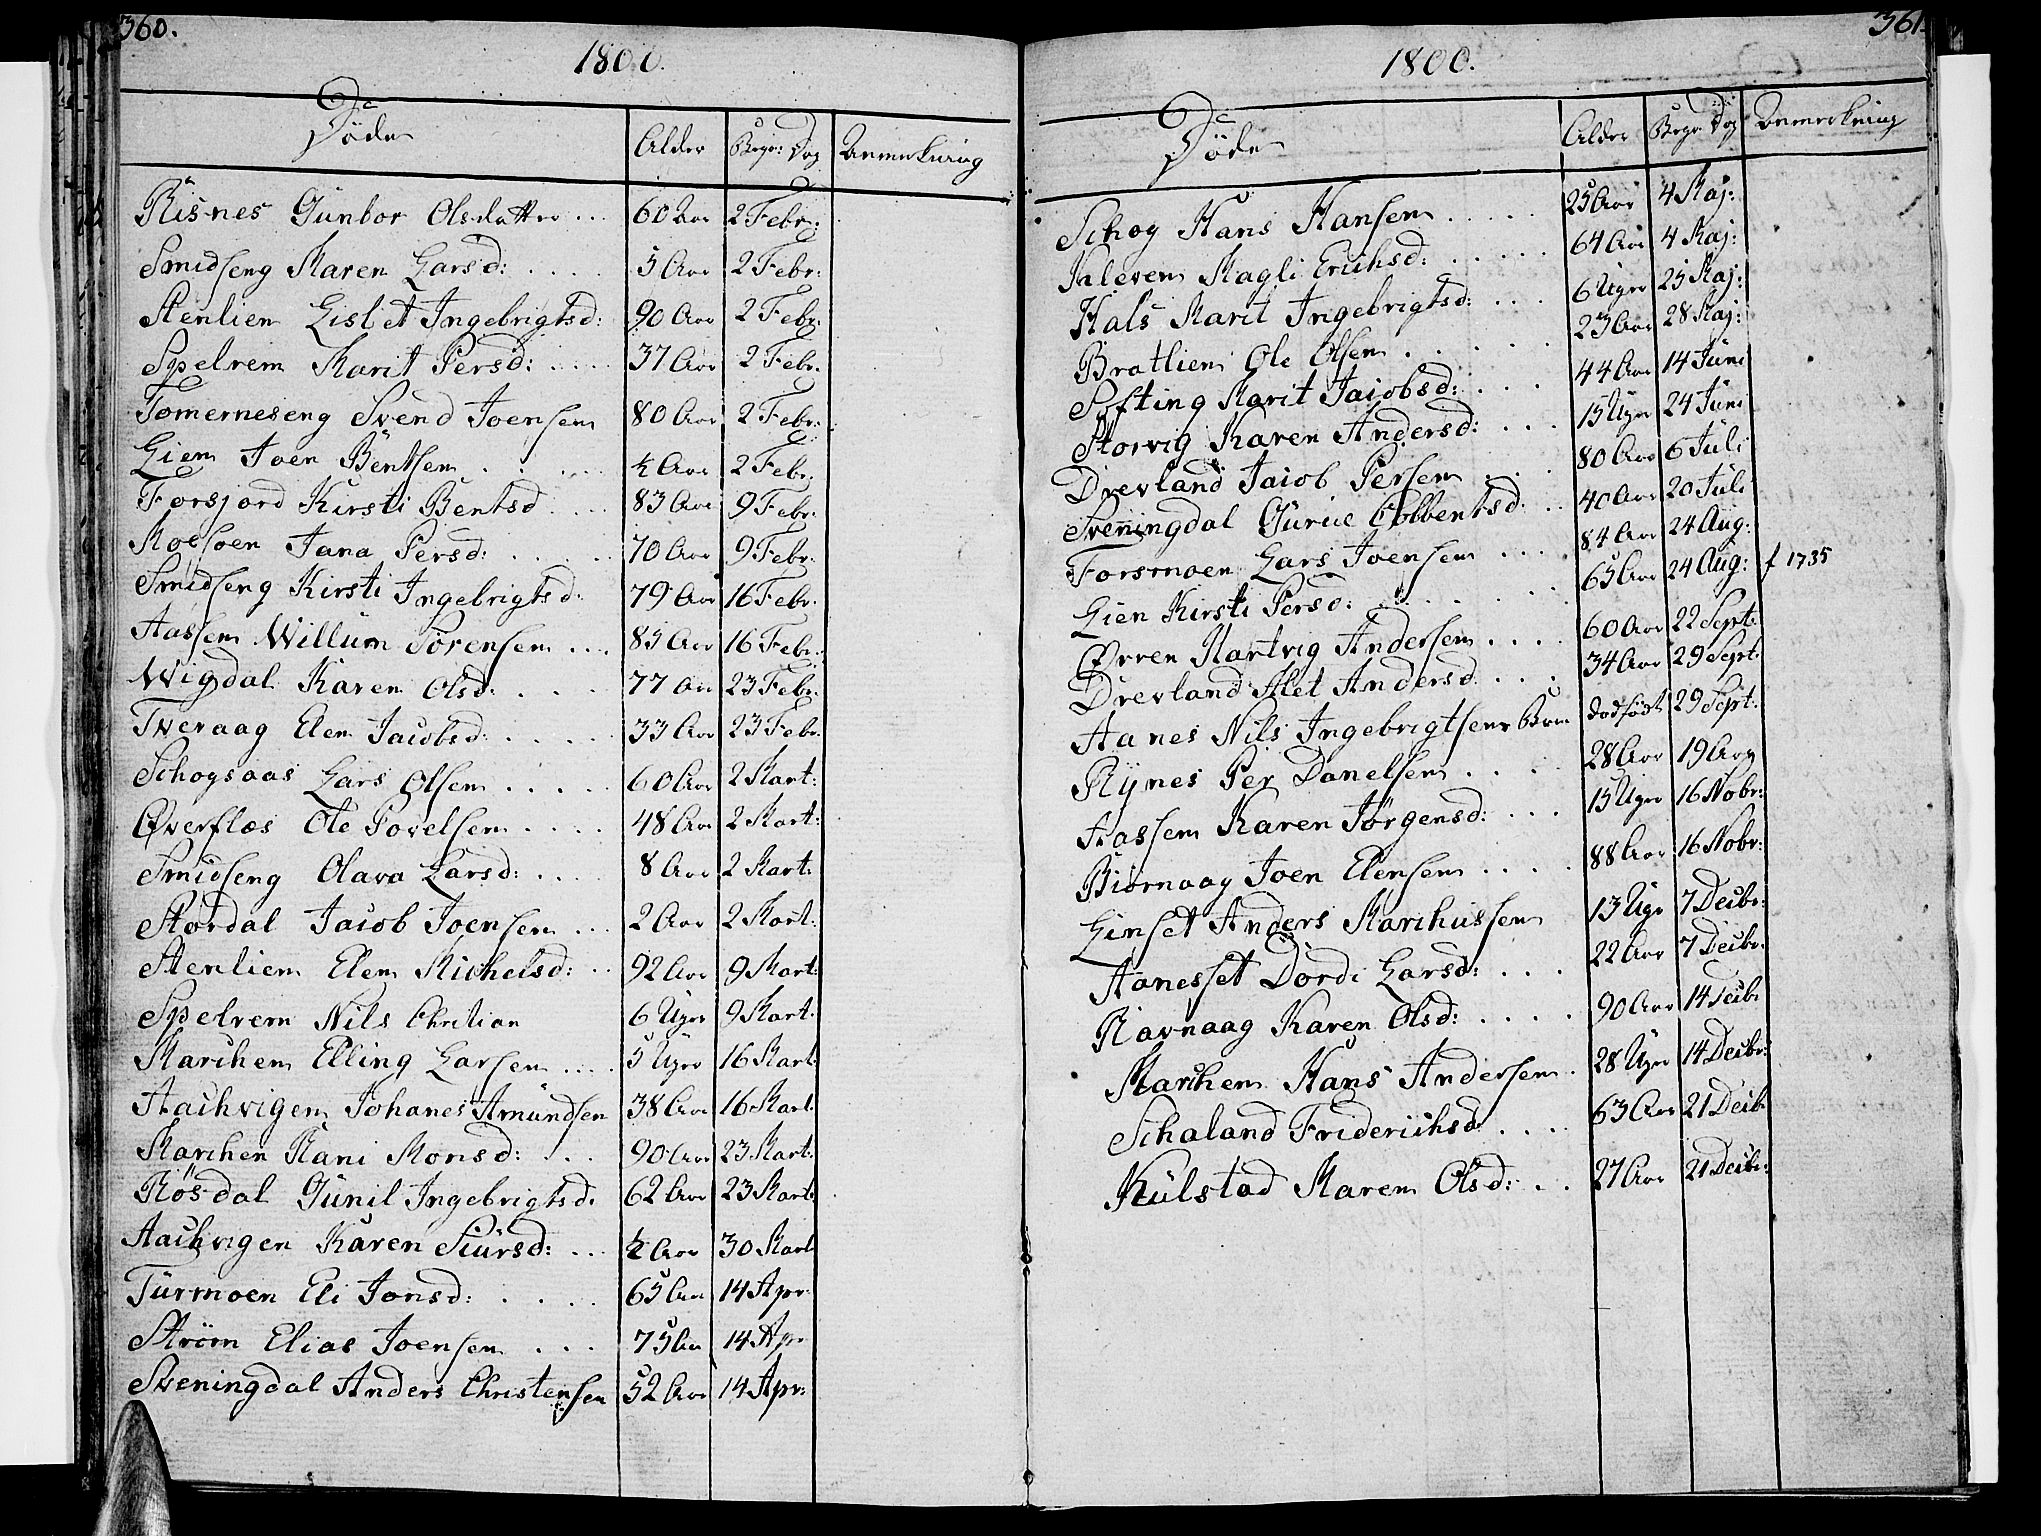 360.
1800.
Döde Alder Begr: Dag Anmerkning
Risnes Gunbor Olsdatter ... 60 Aar 2 Febr:
Smidseng Maren Larsd: .... 5 Aar 2 Febr:
Stenlien Lisbet Ingebrigtsd: 90 Aar 2 Febr:
Spelrem Marit Persd: .... 37 Aar 2 Febr:
Tømmerneseng Svend Joensen 80 Aar 2 Febr:
Liem Joen Bentsen .... ½ Aar 2 Febr:
Forsjord Kirsti Bentsd .... 83 Aar 9 Febr:
Moesoen Jana Persd: .... 70 Aar 9 Febr:
Smidseng Kirsti Ingebrigtsd: 79 Aar 16 Febr:
Aassem Willum Sørensen ... 85 Aar 16 Febr:
Wigdal Karen Olsd: .... 77 Aar 23 Febr:
Tveraag Elen Jacobsd: .... 33 Aar 23 Febr:
Schogsaas Lars Olsen ..... 60 Aar 2 Mart:
Øverflos Ole Povelsen .... 48 Aar 2 Mart:
Smidseng Olava Larsd: .... 8 Aar 2 Mart:
Stordal Jacob Joensen ... 2 Aar 2 Mart:
Stenliem Elen Michelsd: .. 92 Aar 9 Mart:
Spelrem Nils Christian 6 Uger 9 Mart:
Marchem Elling Larsen .... 5 Uger 16 Mart:
Aachvigen Johanes Amundsen 38 Aar 16 Mart:
Marchen Rani Monsd: ... 90 Aar 23 Mart:
Røsdal Gunil Ingebrigtsd: 62 Aar 23 Mart:
Aachvigen Karen Siursd: ... ½ Aar 30 Mart:
Turmoen Eli Jonsd: .... 65 Aar 14 Apr:
Strøm Elias Joensen ... 75 Aar 14 Apr:
Sveningdal Anders Christensen 52 Aar 14 Apr:
361.
1800.
Döde Alder Begr: Dag Anmerkning
Schog Hans Hansen ..... 25 Aar 4 Maj:
Kleven Magli Erichsd: ..... 64 Aar 4 Maj:
Hals Marit Ingebrigtsd: ... 6 Uger 25 Maj:
Bratlien Ole Olsen ..... 23 Aar 28 Maj:
Søfting Marit Jacobsd: ... 44 Aar 14 Juni
Storvig Karen Andersd: ... 15 Uger 24 Juni
Drevland Jacob Persen ... 80 Aar 6 Juli
Sveningdal Gurue Ebbentsd: .. 40 Aar 20 Juli
Forsmoen Lars Joensen .... 84 Aar 24 Aug:
Lien Kirsti Persd: ...... 65 Aar 24 Aug: f 1735
Ørren Hartvig Andersen .... 60 Aar 22 Sept:
Drevland Alet Andersd .... 34 Aar 29 Sept:
Aanes Nils Ingebrigtsens Barn dødfødt 29 Sept:
Rynes Per Danelsen .... 28 Aar 19
Aassem Karen Jørgensd: ... 15 Uger 16 Nobr:
Biørnaag Joen Elensen .... 88 Aar 16 Nobr:
Linset Anders Marchussen 13 Uger 7 Decbr:
Aanesset Dordi Larsd: ... 22 Aar 7 Decbr:
Ravnaag Karen Olsd: .... 90 Aar 14 Decbr
Marchem Hans Andersen . 28 Uger 14 Decbr:
Schaland Friderichsd .... 63 Aar 21 Decb:
Kulstad Maren Olsd: .. 27 Aar 21 Decbr: